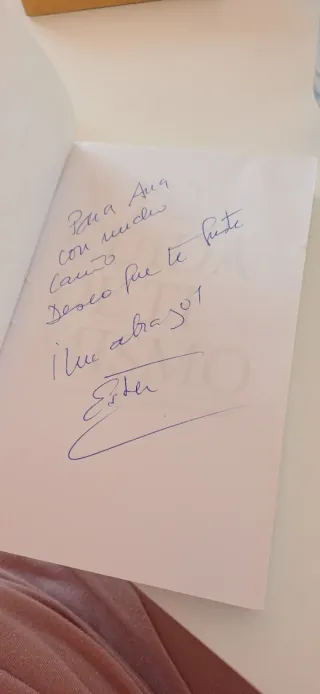 Para Ana
con mucho
cariño
Deseo que te guste
¡Un abrazo!
Ester